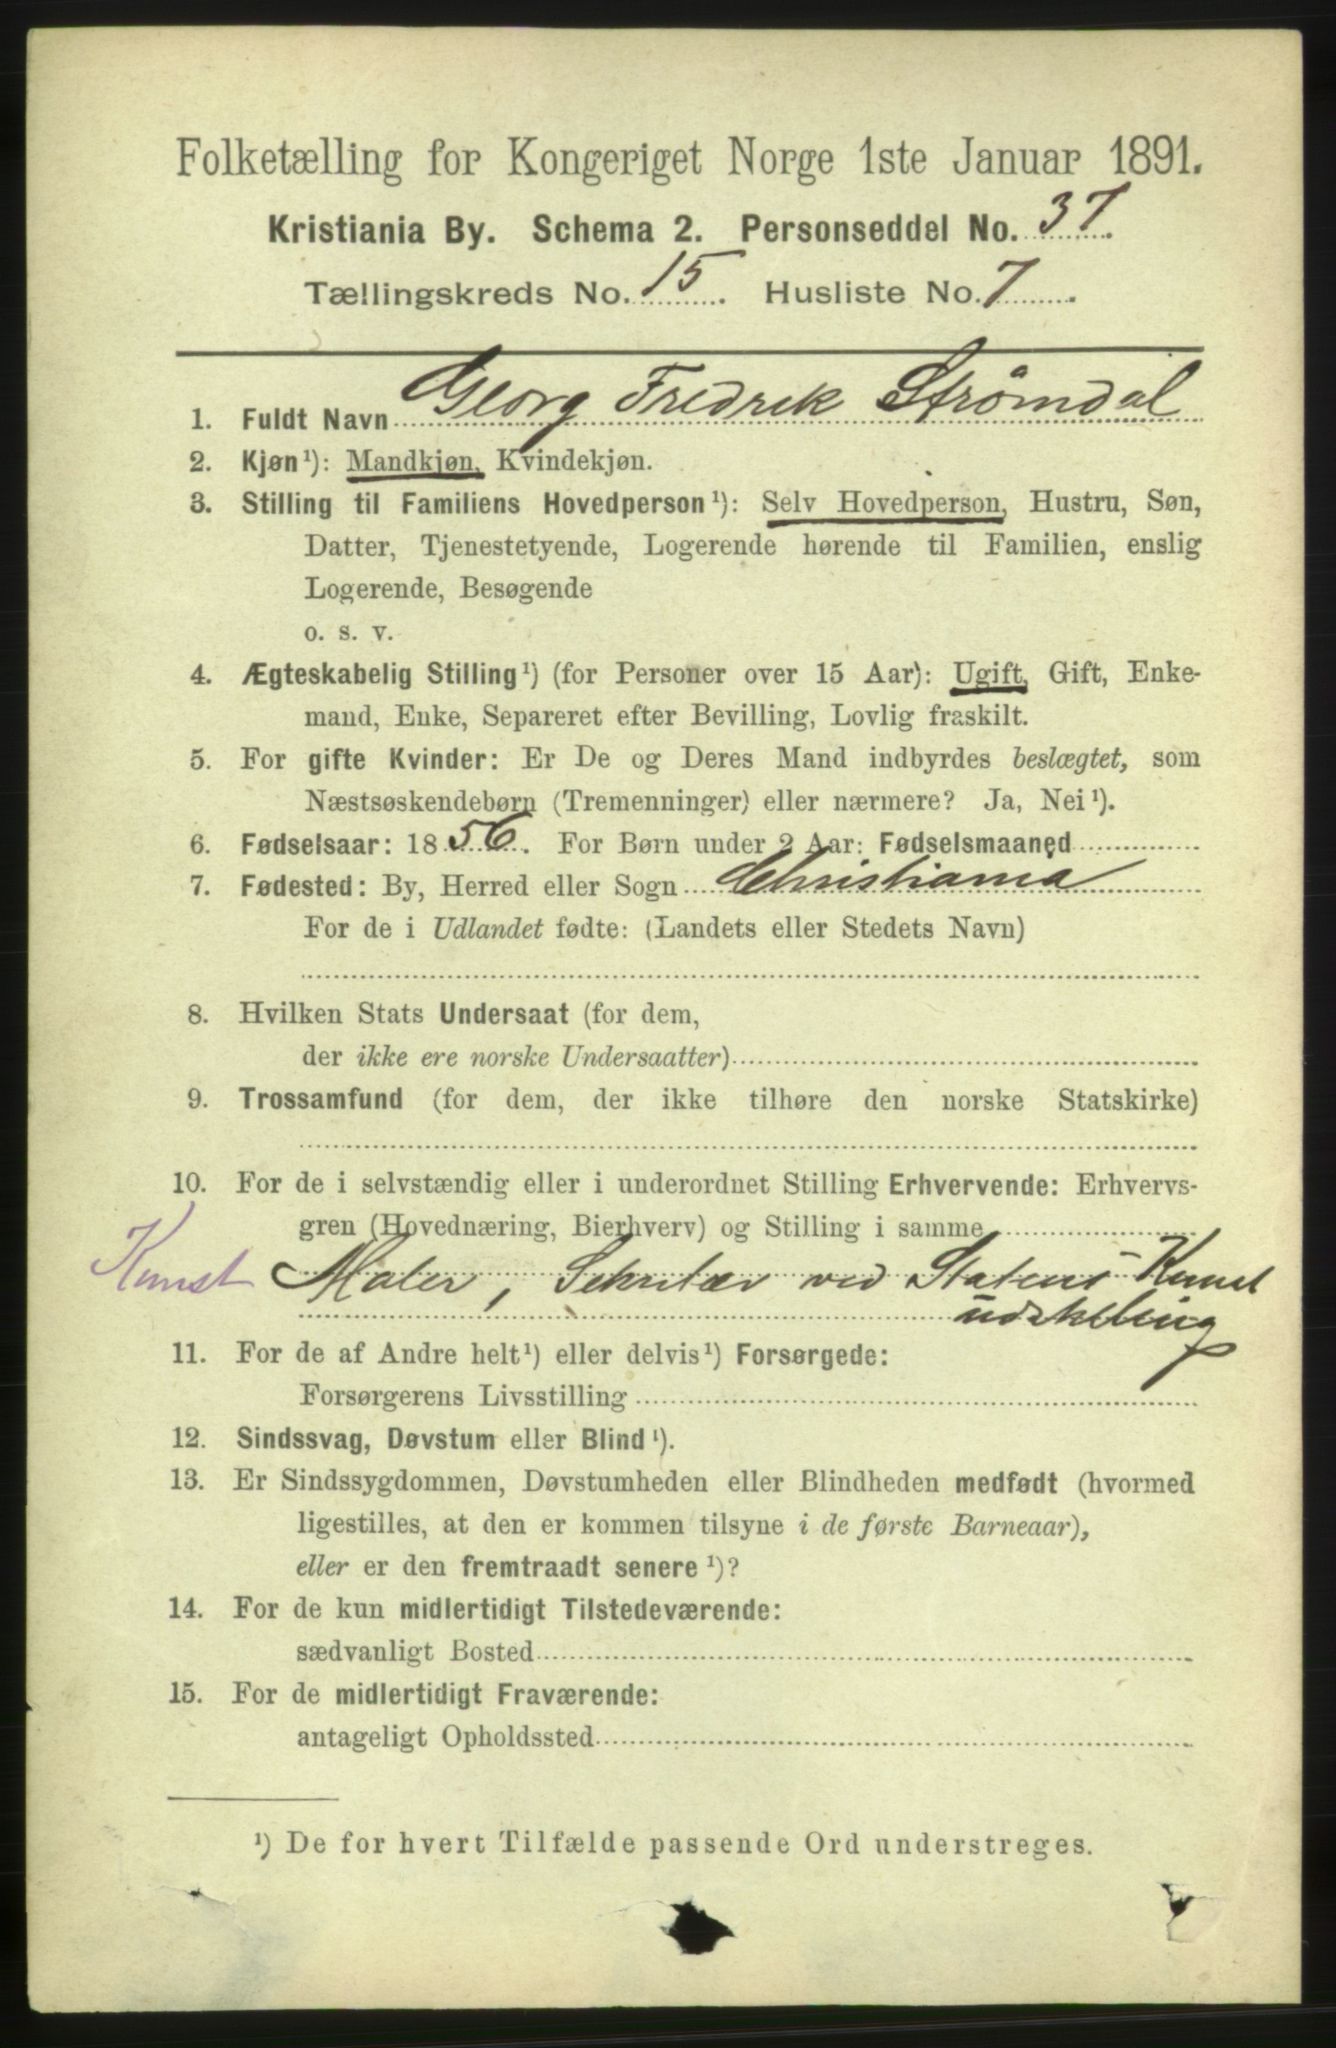 Folketælling for Kongeriget Norge 1ste Januar 1891.
Kristiania By. Schema 2. Personseddel No. 37.
Tællingskreds No. 15. Husliste No. 7.
1. Fuldt Navn Georg Fredrik Strømdal
2. Kjøn¹): Mandkjøn, Kvindekjøn.
3. Stilling til Familiens Hovedperson¹): Selv Hovedperson, Hustru, Søn,
Datter, Tjenestetyende, Logerende hørende til Familien, enslig
Logerende, Besøgende
o. s. v.
4. Ægteskabelig Stilling¹) (for Personer over 15 Aar): Ugift, Gift, Enke-
mand, Enke, Separeret efter Bevilling, Lovlig fraskilt.
5. For gifte Kvinder: Er De og Deres Mand indbyrdes beslægtet, som
Næstsøskendebørn (Tremenninger) eller nærmere? Ja, Nei¹).
6. Fødselsaar: 1856. For Børn under 2 Aar: Fødselsmaaned
7. Fødested: By, Herred eller Sogn Christiania
For de i Udlandet fødte: (Landets eller Stedets Navn)
8. Hvilken Stats Undersaat (for dem,
der ikke ere norske Undersaatter)
9. Trossamfund (for dem, der ikke tilhøre den norske Statskirke)
10. For de i selvstændig eller i underordnet Stilling Erhvervende: Erhvervs-
gren (Hovednæring, Bierhverv) og Stilling i samme
Kunst Maler, Sekretær ved Statens Kunst
udstilling
11. For de af Andre helt¹) eller delvis¹) Forsørgede:
Forsørgerens Livsstilling
12. Sindssvag, Døvstum eller Blind¹).
13. Er Sindssygdommen, Døvstumheden eller Blindheden medfødt (hvormed
ligestilles, at den er kommen tilsyne i de første Barneaar),
eller er den fremtraadt senere¹)?
14. For de kun midlertidigt Tilstedeværende:
sædvanligt Bosted
15. For de midlertidigt Fraværende:
antageligt Opholdssted
¹) De for hvert Tilfælde passende Ord understreges.